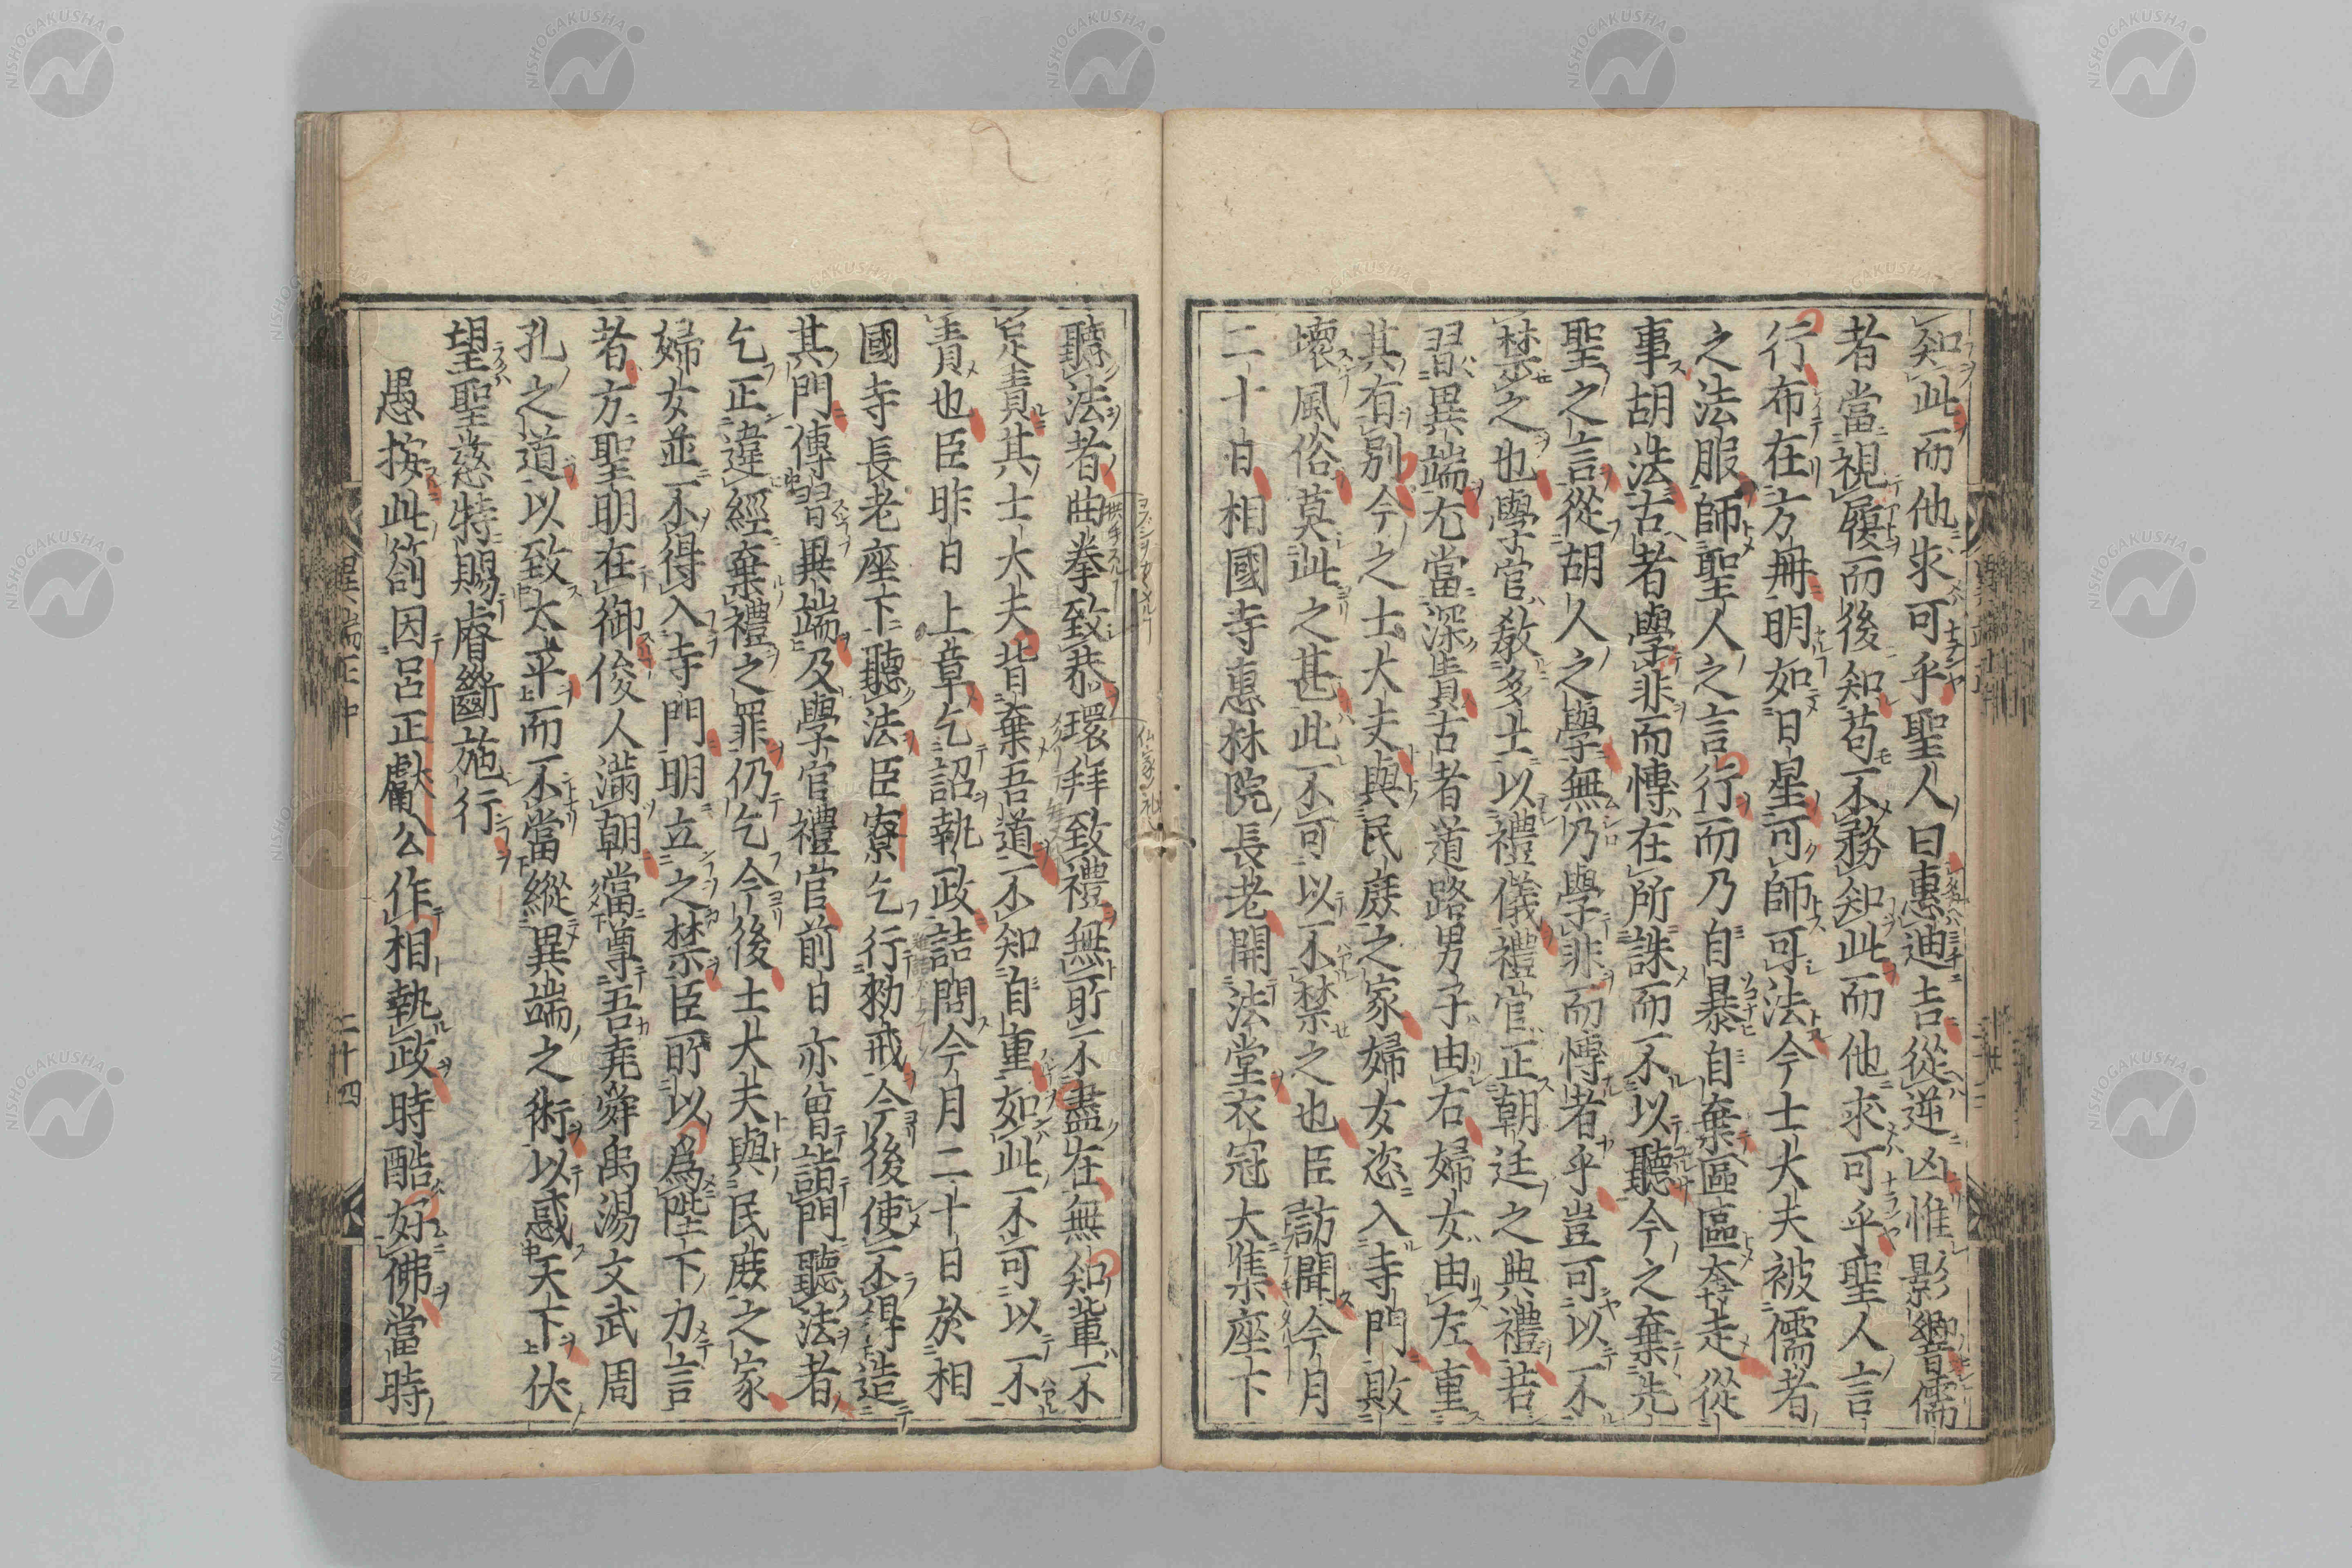 知此而他求可乎聖人曰惠迪吉從逆凶惟影響儒
者當視履而後知苟不務知此而他求可乎聖人言
行布在方冊明如日星可師可法今士大夫被儒者
之法服師聖人之言行而乃自暴自棄區區奔走從
事胡法古者學非而愽在所誅而不以聽今之棄先
聖之言從胡人之學無乃學非而愽者乎豈可以不
禁之也學官敎多士以禮儀禮官正朝廷之典禮若
習異端尤當深責古者道路男子由右婦女由左重
其有別今之士大夫與民庶之家婦女恣入寺門敗
壞風俗莫此之甚此不可以不禁之也臣訪聞今月
二十日相國寺惠林院長老開法堂衣冠大集座下
聽法者曲拳致恭環拜致禮無所不盡在無知輩不
足責其士大夫背棄吾道不知自重如此不可以不
責也臣昨日上章乞詔執政詰問今月二十日於相
國寺長老座下聽法臣寮乞行勑戒今後使不得造
其門傳習異端及學官禮官前日亦曾詣門聽法者
乞正違經棄禮之罪仍乞今後士大夫與民庶之家
婦女並不得入寺門明立之禁臣所以爲陛下力言
者方聖明在御俊人滿朝當尊吾堯舜禹湯文武周
孔之道以致太平而不當縱異端之術以惑天下伏
望聖慈特賜睿斷施行
愚按此箚因呂正獻公作相執政時酷好佛當時
異端正中
二十四